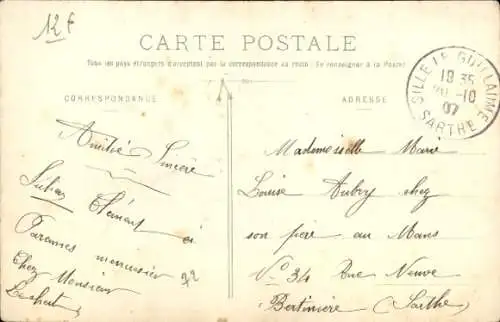 12 f
CARTE POSTALE
Tous les pays étrangers n'acceptent pas la correspondance au recto. (Se renseigner à la Poste)
CORRESPONDANCE
ADRESSE
SILLE LE GUILLAUME
10 35
10
07
SARTHE
Amitié Sincère
Clément
Parennes menuisier
Chez Monsieur
72
Mademoiselle Marie
Louise Aubry chez
son père au Mans
N° 34 Rue Neuve
Bertinière (Sarthe)